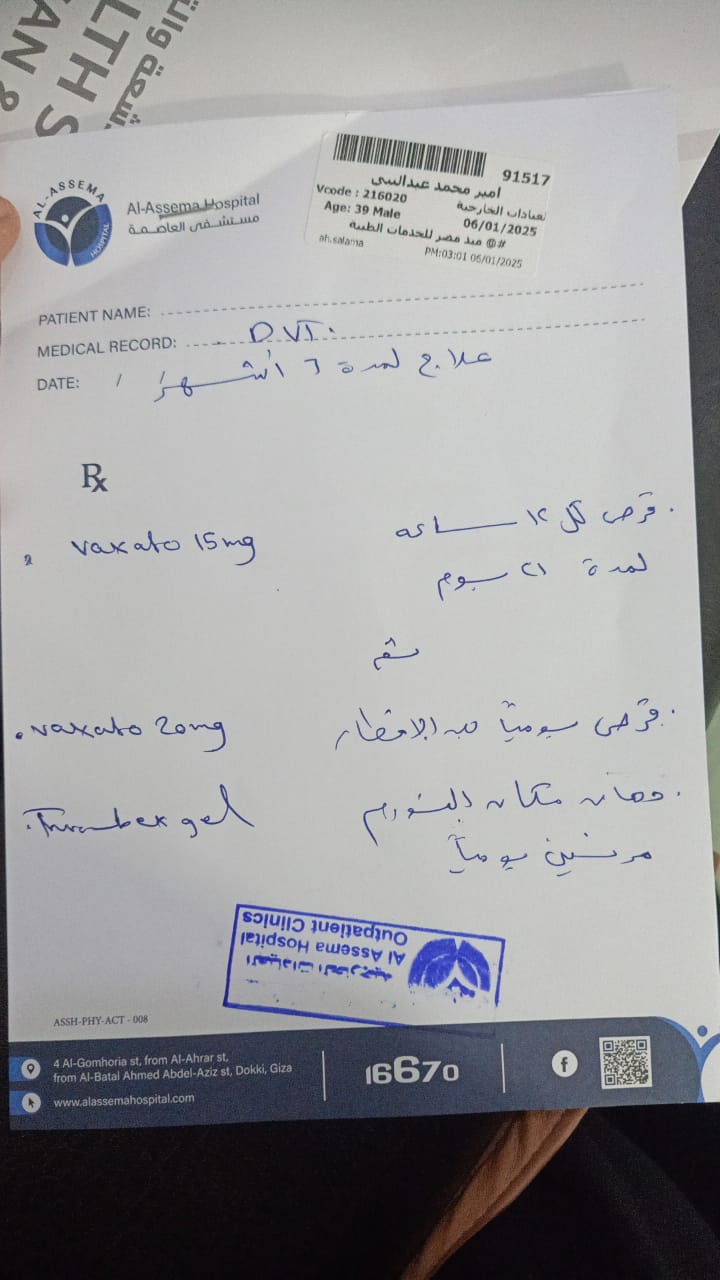 LTH S
AN &
AL-ASSEMA
HOSPITAL
Al-Assema Hospital
مستشفى العاصمة
91517
امير محمد عبدالنبى
Vcode : 216020
لعيادات الخارجية
Age: 39 Male
06/01/2025
#@ ميد مصر للخدمات الطبية
ah.salama
PM:03:01 06/01/2025
PATIENT NAME:
MEDICAL RECORD: DVT.
DATE: / /
علاج لمدة ٦ أشهر
Rx
vaxato 15mg
قرص كل ١٢ ساعه
لمدة ٢١ يوم
ثم
vaxato 20mg
قرص يومياً بعد الإفطار
Thrombex gel
دهان مكان التورم
مرتين يومياً
العيادات الخارجية
Al Assema Hospital
Outpatient Clinics
ASSH-PHY-ACT - 008
4 Al-Gomhoria st, from Al-Ahrar st,
from Al-Batal Ahmed Abdel-Aziz st, Dokki, Giza
www.alassemahospital.com
16670